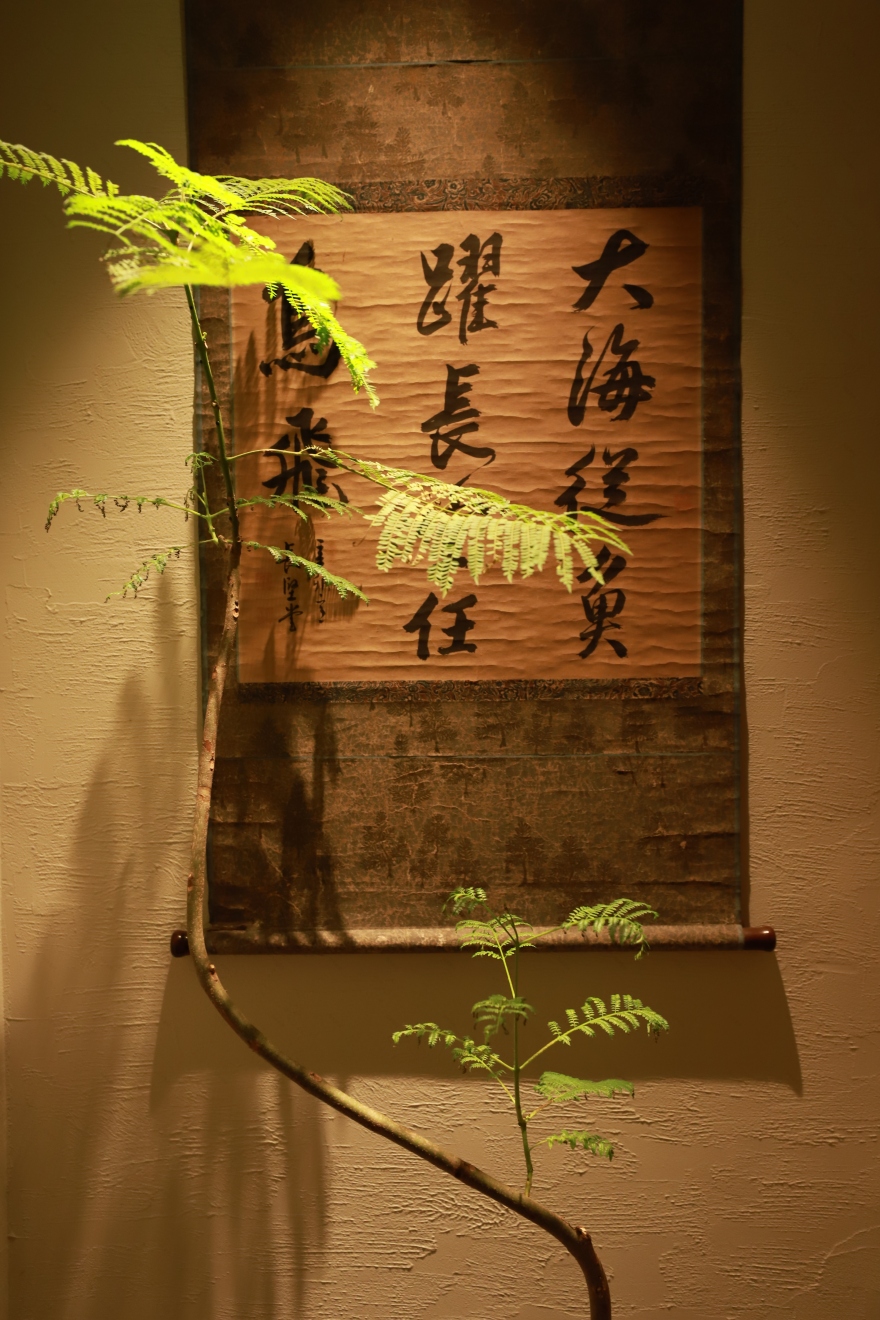 大海従魚
躍長任
鳥飛